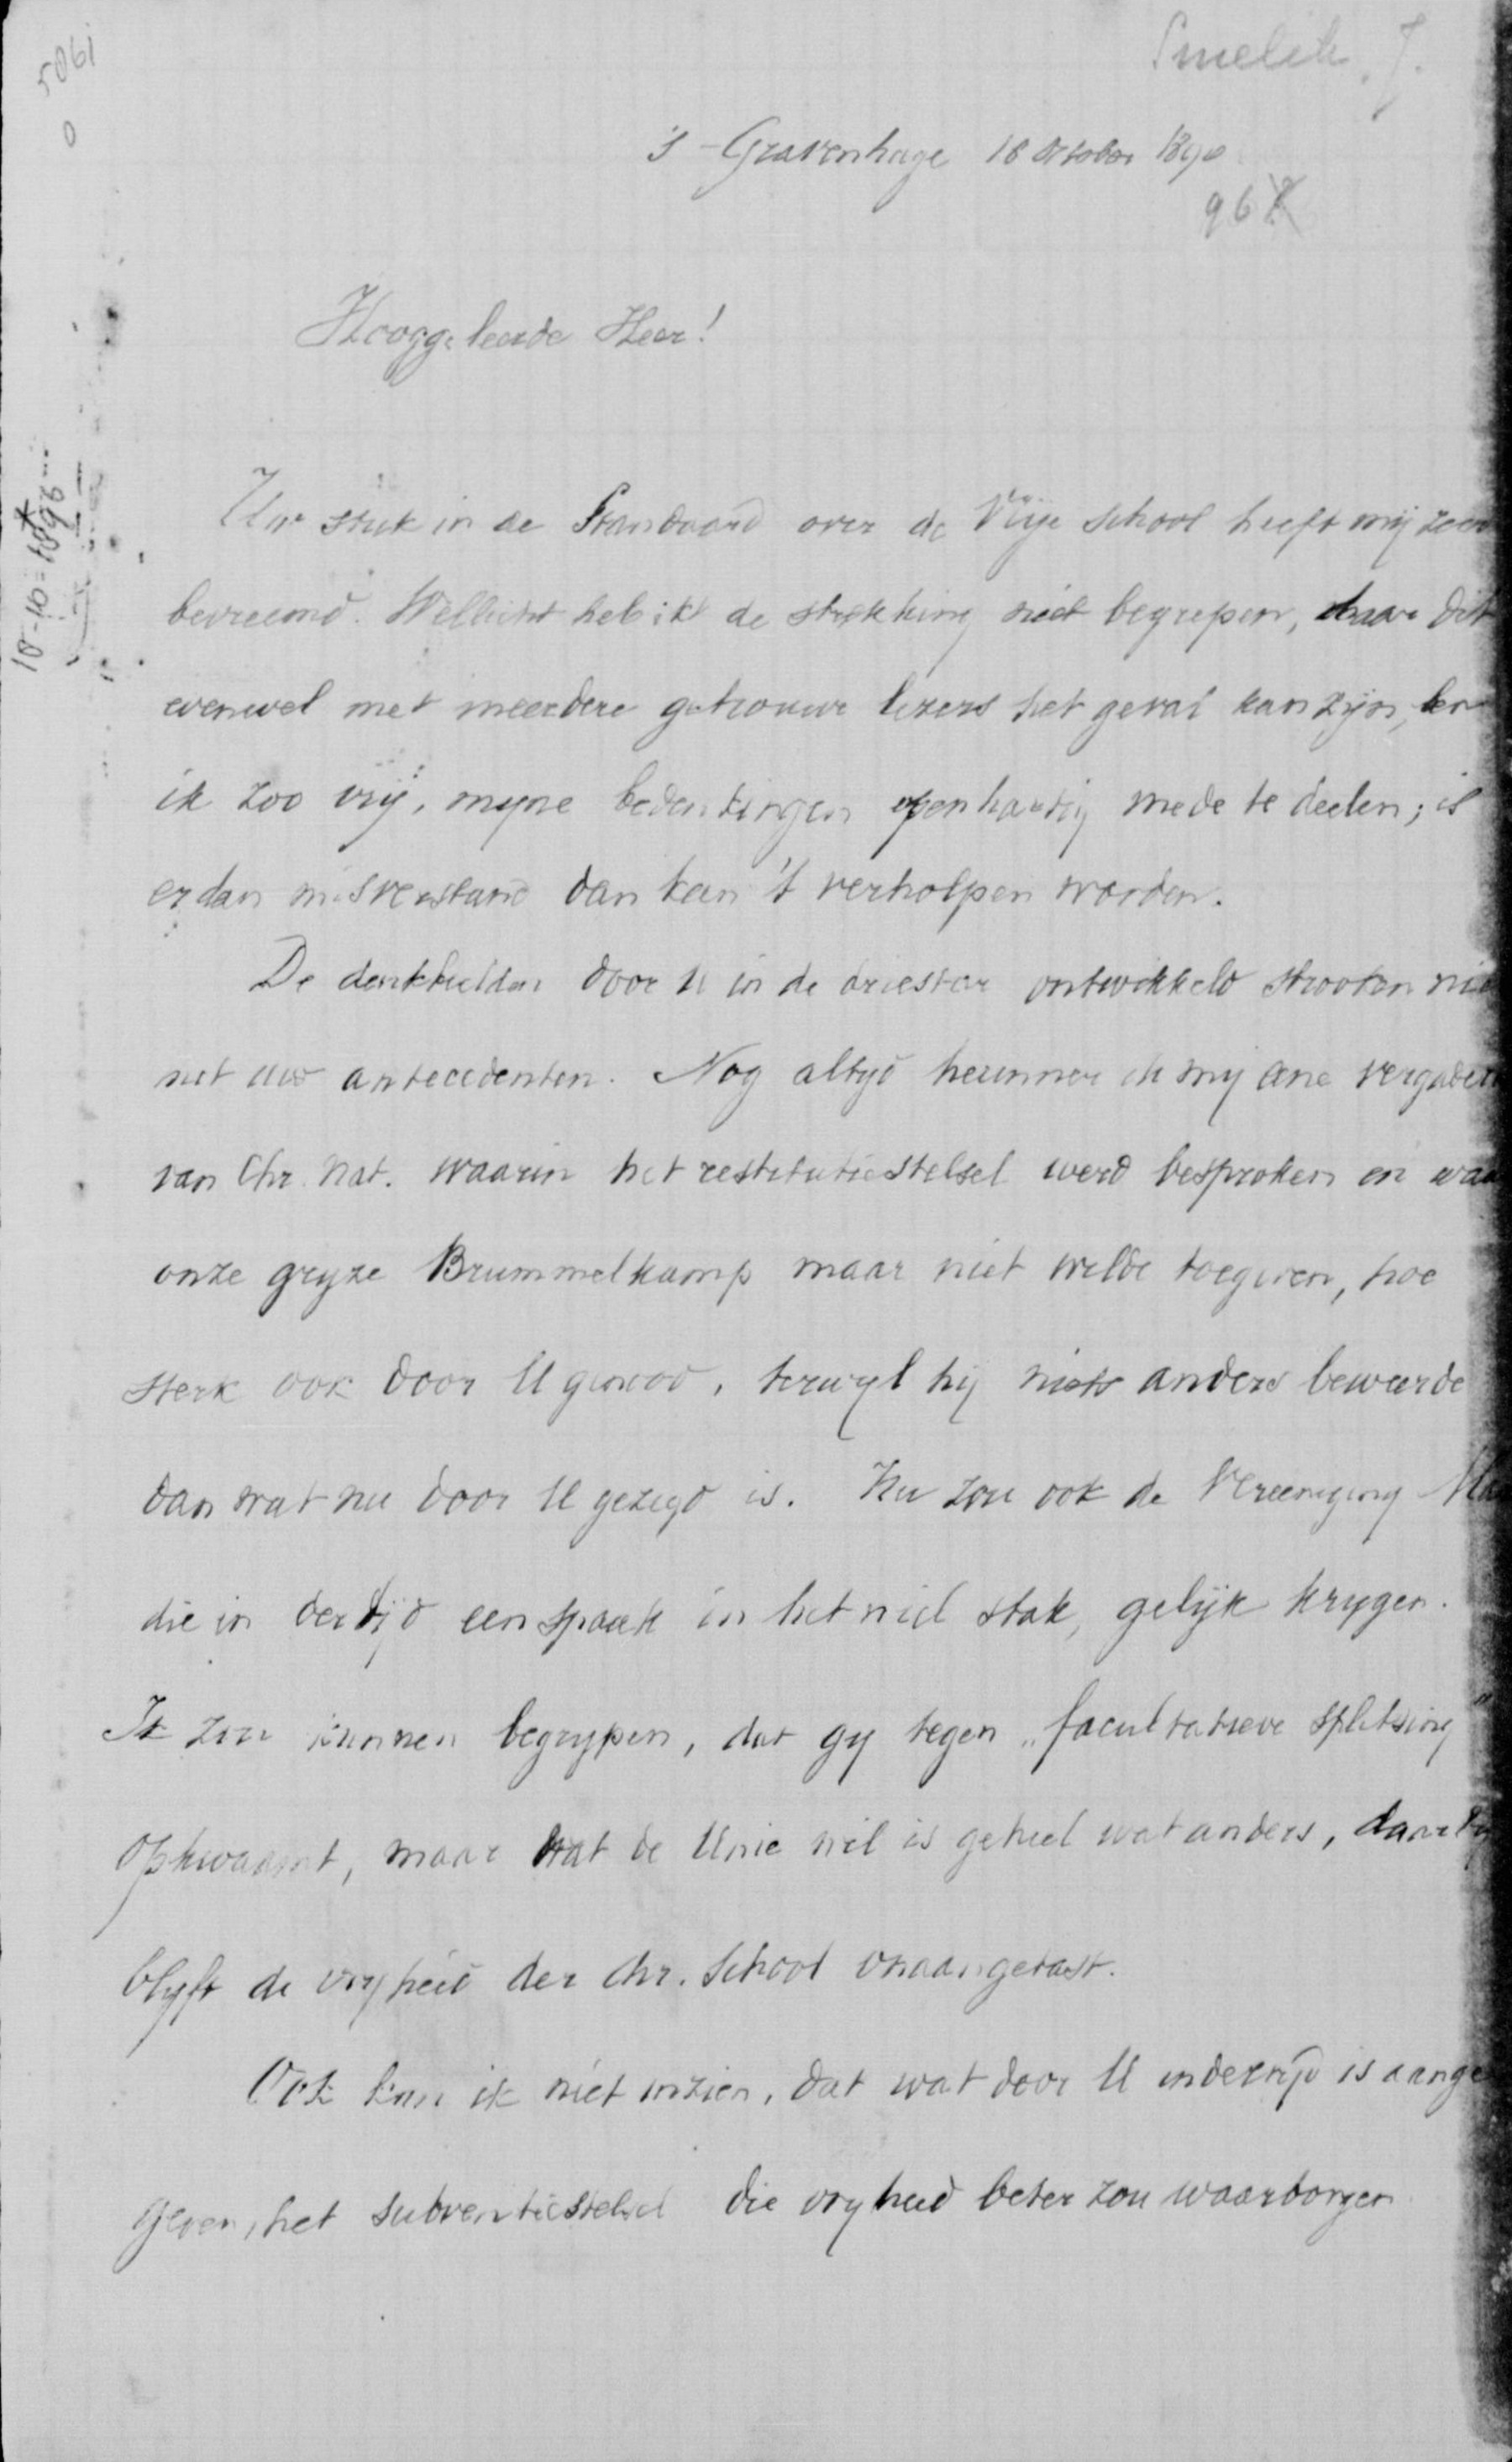 5061
0
Smelik, J.
's-Gravenhage 18 October 1890
96
18-10-1896
Hooggeleerde Heer!
Uw stuk in de Standaard over de Vrije School heeft mij zeer
bevreemd. Wellicht heb ik de strekking niet begrepen, daar dit
evenwel met meerdere getrouwe lezers het geval kan zijn, ben
ik zoo vrij, mijne bedenkingen openhartig mede te deelen; is
er dan misverstand dan kan 't verholpen worden.
De denkbeelden door U in de driestar ontwikkeld strooken
met uw antecedenten. Nog altyd herinner ik mij eene
van Chr. Nat. waarin het restitutiestelsel werd besproken en
onze gryze Brummelkamp maar niet wilde toegeven, hoe
sterk ook door U genood, terwyl hij niets anders beweerde
dan wat nu door U gezegd is. Nu zou ook de Vereeniging
die in der tijd een spaak in het wiel stak, gelijk krygen.
Ik zou kunnen begrypen, dat gy tegen „facultatieve splitsing"
opkwaamt, maar wat de Unie wil is geheel wat anders,
blyft de vryheid der Chr. School onaangetast.
Ook kan ik niet inzien, dat wat door U indertyd is aange
geven, het subventiestelsel die vryheid beter zou waarborgen